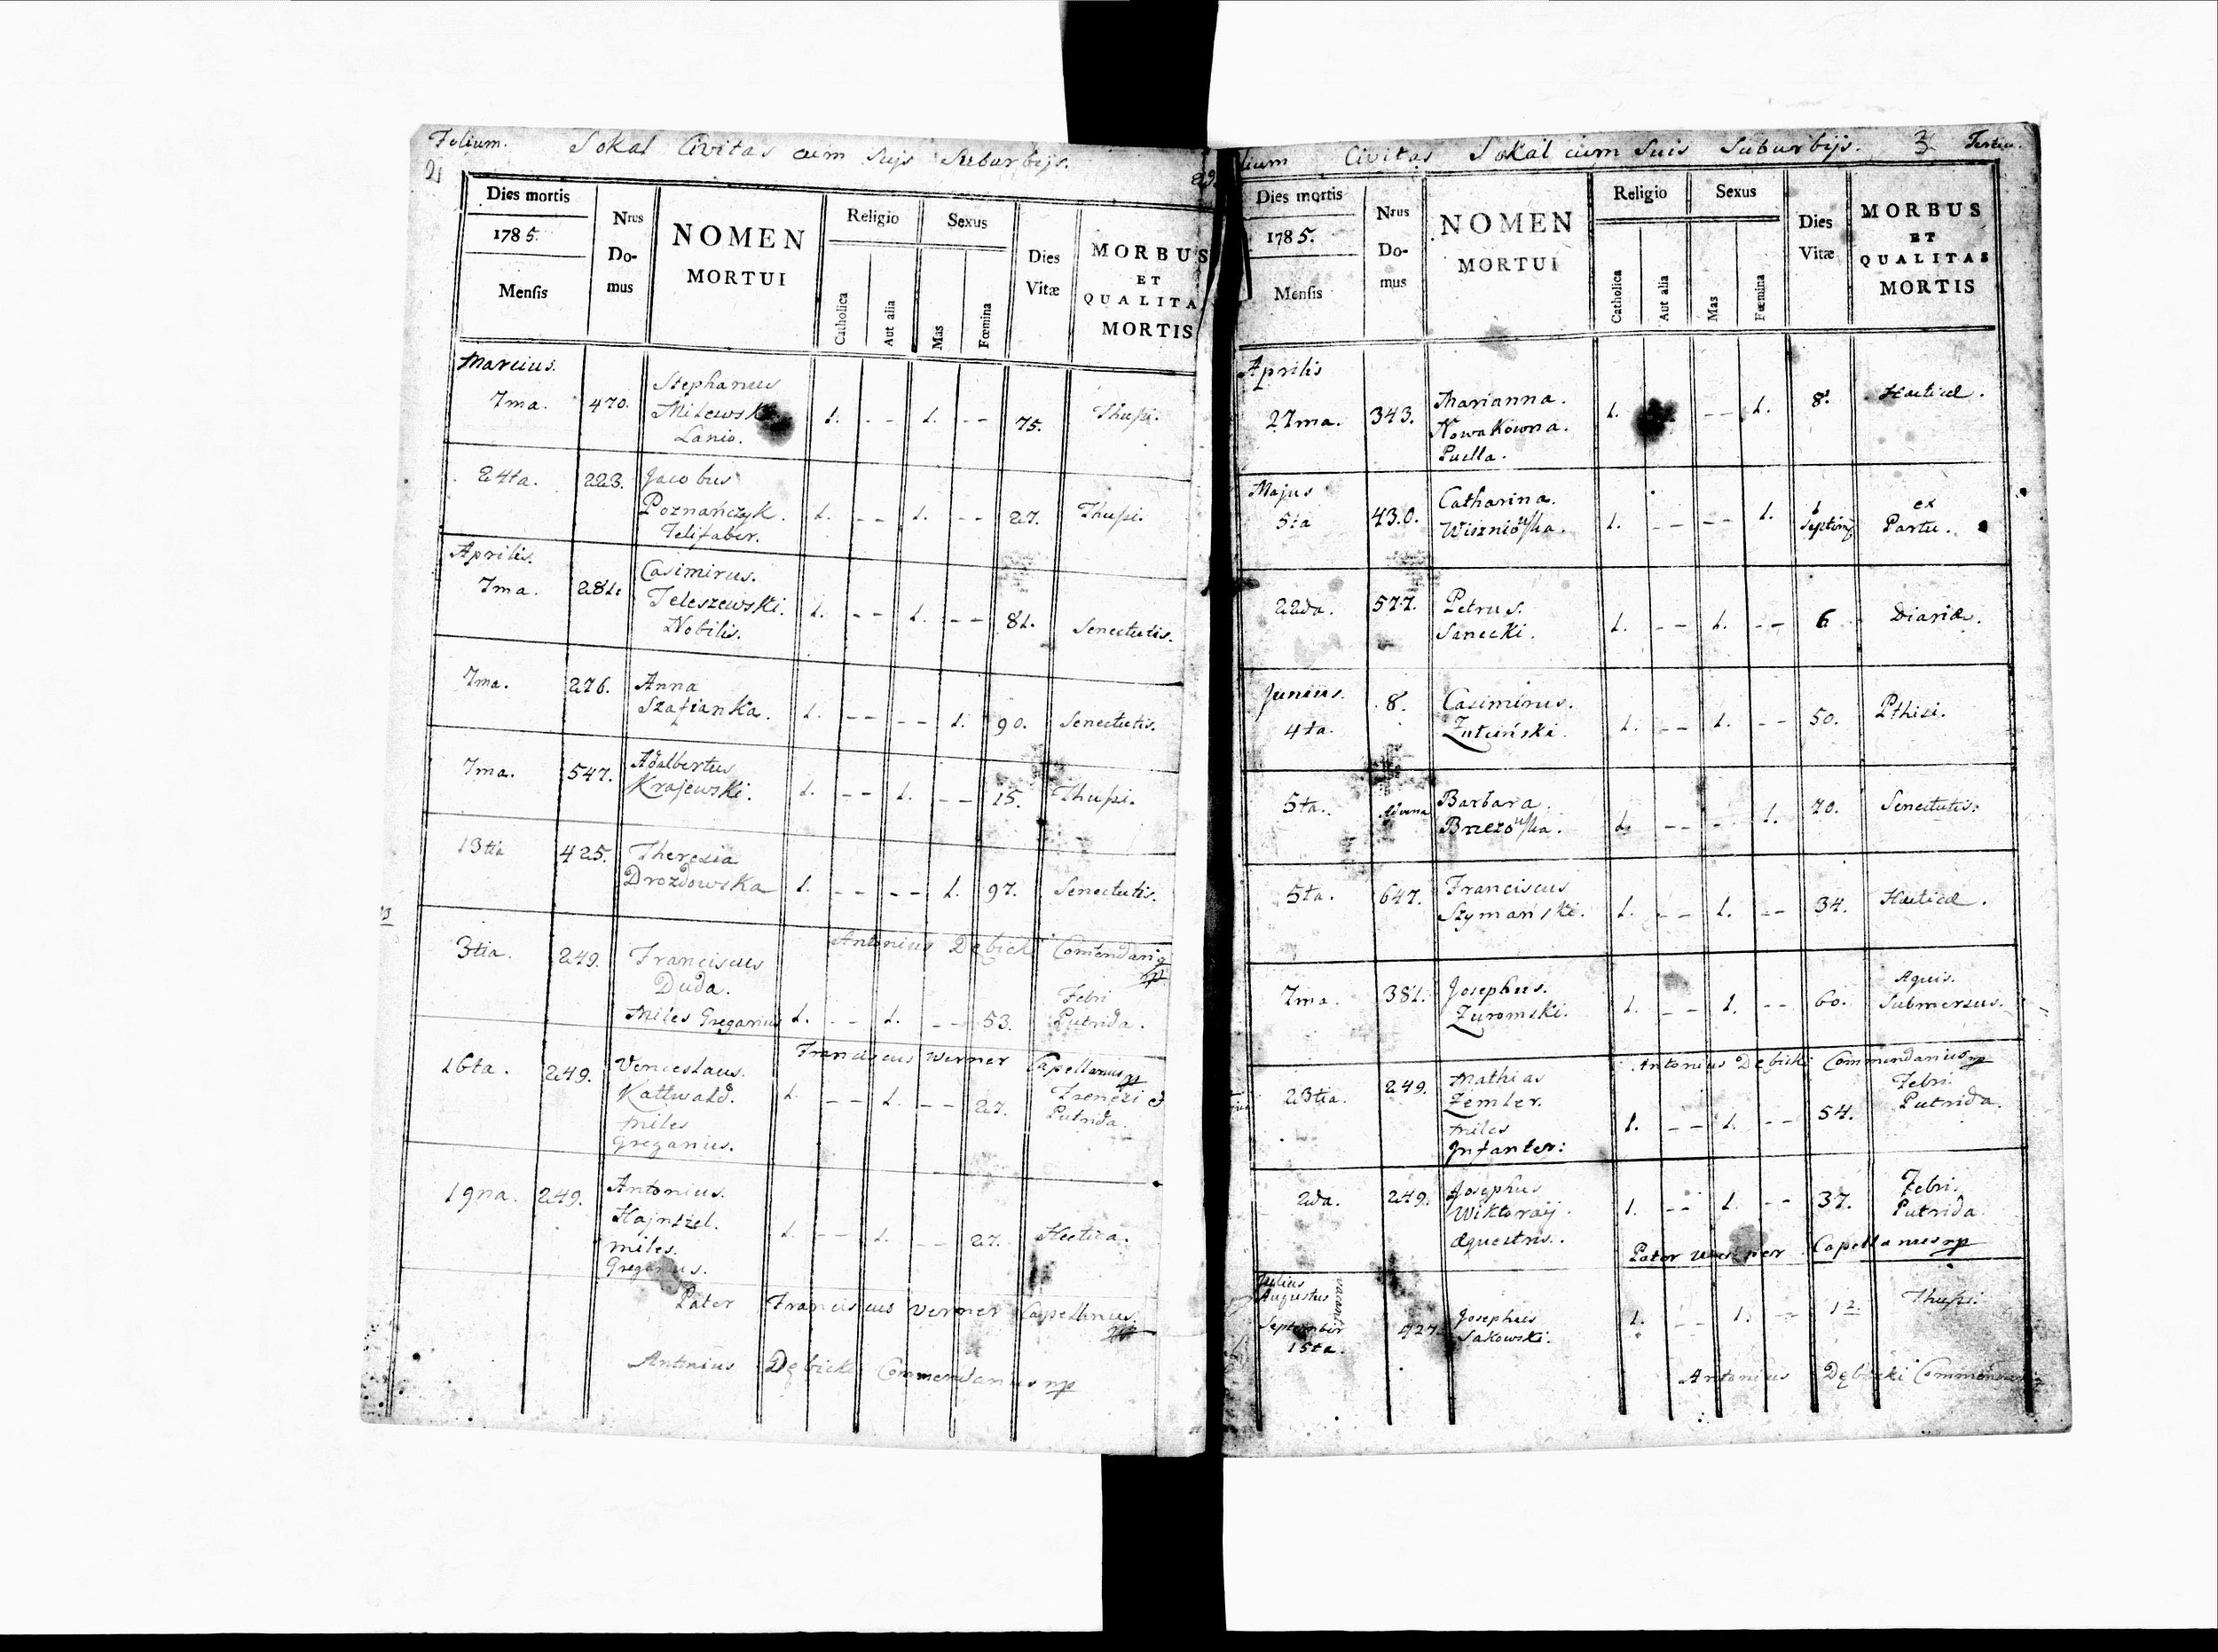 Folium. Sokal Civitas cum Suis Suburbijs.
2
Dies mortis
1785.
Mensis
Nrus
Do-
mus
NOMEN
MORTUI
Religio
Catholica
Aut alia
Sexus
Mas
Fœmina
Dies
Vitæ
MORBUS
ET
QUALITA
MORTIS
Marcius.
7ma. 470. Stephanus
Milewski
Lanio. 1. - - 1. - - 75. Thussi.
24ta. 223. Jacobus
Poznańczyk.
Telifaber. 1. - - 1. - - 27. Thussi.
Aprilis.
7ma. 281. Casimirus.
Teleszewski.
Nobilis. 1. - - 1. - - 81. Senectutis.
7ma. 276. Anna
Szafianka. 1. - - - - 1. 90. Senectutis.
7ma. 547. Adalbertus
Krajewski. 1. - - 1. - - 15. Thussi.
13tia 425. Theresia
Drozdowska 1. - - - - 1. 97. Senectutis.
Antonius Dębicki Comendariq
mp
3tia. 249. Franciscus
Duda.
Miles Gregarius 1. - - 1. - - 53. Febri
Putrida.
Franciscus Werner Capellanus mp
16ta. 249. Venceslaus.
Kattwald.
miles
Gregarius. 1. - - 1. - - 27. Frenezi et
Putrida.
19na. 249. Antonius.
Hajntzel.
miles.
Gregarius. 1. - - 1. - - 27. Hectica.
Pater Franciscus Verner Capellanus.
mp
Antonius Dębicki Commendarius mp
lium Civitas Sokal cum Suis Suburbijs. 3 Tertiu.
Dies mortis
1785.
Mensis
Nrus
Do-
mus
NOMEN
MORTUI
Religio
Catholica
Aut alia
Sexus
Mas
Fœmina
Dies
Vitæ
MORBUS
ET
QUALITAS
MORTIS
Aprilis
27ma. 343. Marianna.
Nowakowna.
Puella. 1. - - 1. 8. Hecticæ.
Majus
5ta 430. Catharina.
Wiszniowska. 1. - - - - 1. 1
Septim ex
Partu.
22da. 577. Petrus.
Sanecki. 1. - - 1. - - 6 Diariæ.
Junius.
4ta. 8. Casimirus.
Zuliński. 1. - - 1. - - 50. Pthisi.
5ta. Advena Barbara.
Brzezowska. 1. - - - 1. 70. Senectutis.
5ta. 647. Franciscus
Szymański. 1. - - 1. - - 34. Hecticæ.
7ma. 381. Josephus.
Zuromski. 1. - - 1. - - 60. Aquis.
Submersus.
Antonius Dębicki Commendarius mp
23tia. 249. Mathias
Zemler.
miles
Infanter: 1. - - 1. - - 54. Febri
Putrida.
2da. 249. Josephus
Wiktoraij.
æquestris. 1. - - 1. - - 37. Febri
Putrida
Pater Capellanus mp
Julius
Augustus
vacant.
September
15ta. 427. Josephus
Sakowski. 1. - - 1. - - 12. Thussi.
Antonius Dębicki Commendariq